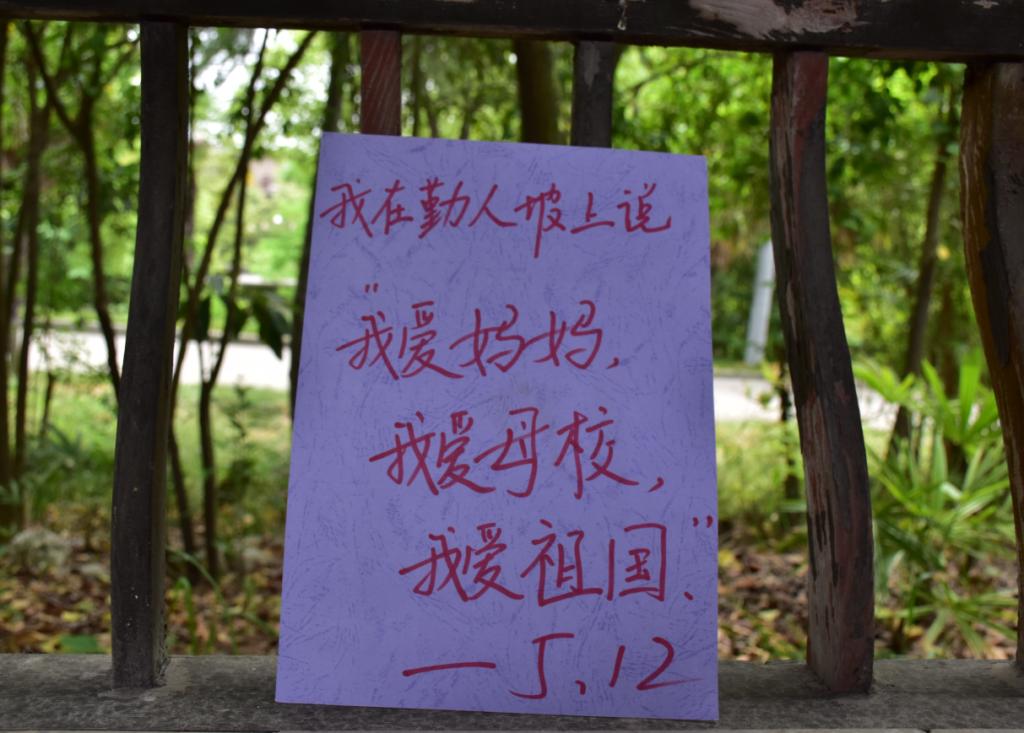 我在勤人坡上说
"我爱妈妈,
我爱母校,
我爱祖国."
—5.12